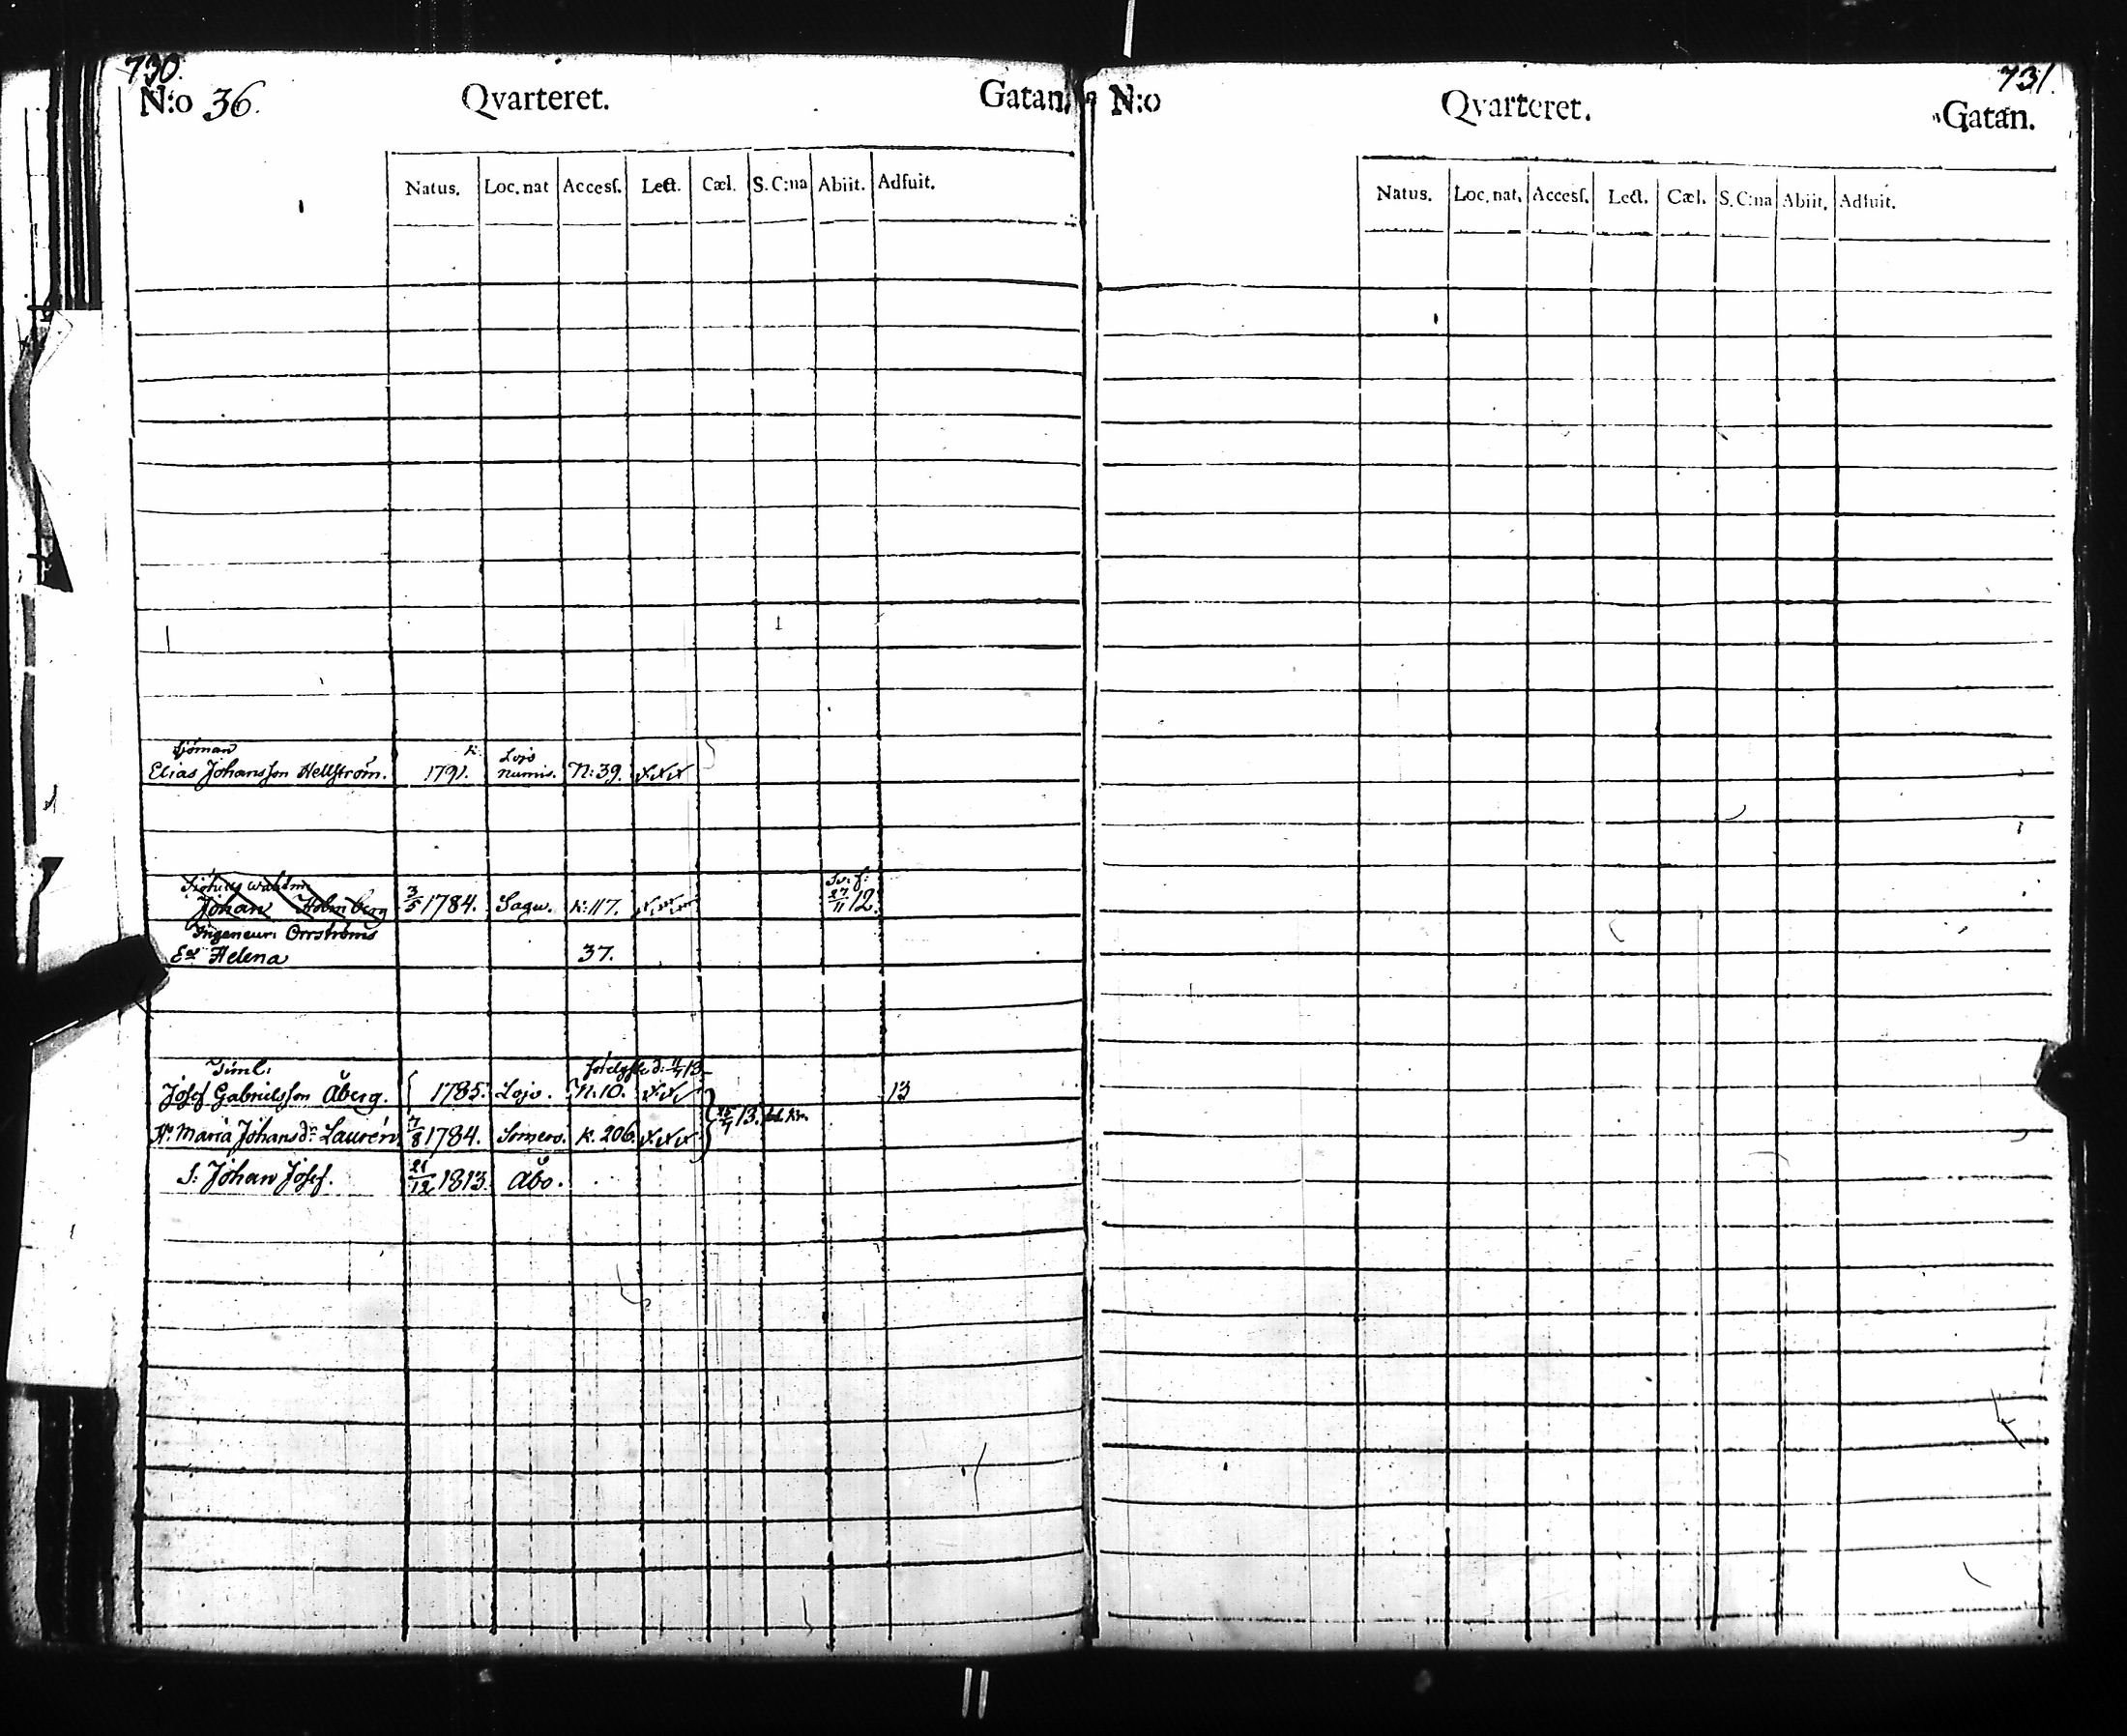 730.
N:o 36. Qvarteret. Gatan.
Natus. Loc. nat Accesſ. Lect. Cæl. S. C:na Abiit. Adfuit.
Sjöman
Elias Johansſon Hellström. 1791. Lojo Numis. N:39.
Johan Holmberg 3/5 1784. Sagu. K:117. 27/11 12.
Ingeneur: Orrströms
Helena 37.
Timl:
Josef Gabrielsſon Åberg. 1785. Lojo. N:10. 13
Hu Maria Johansdr Laurén 7/8 1784. Somero. K. 206. 13.
S: Johan Josef. 21/12 1813. Åbo.
731.
N:o Qvarteret. Gatan.
Natus. Loc. nat. Accesſ. Lect. Cæl. S. C:na Abiit. Adfuit.